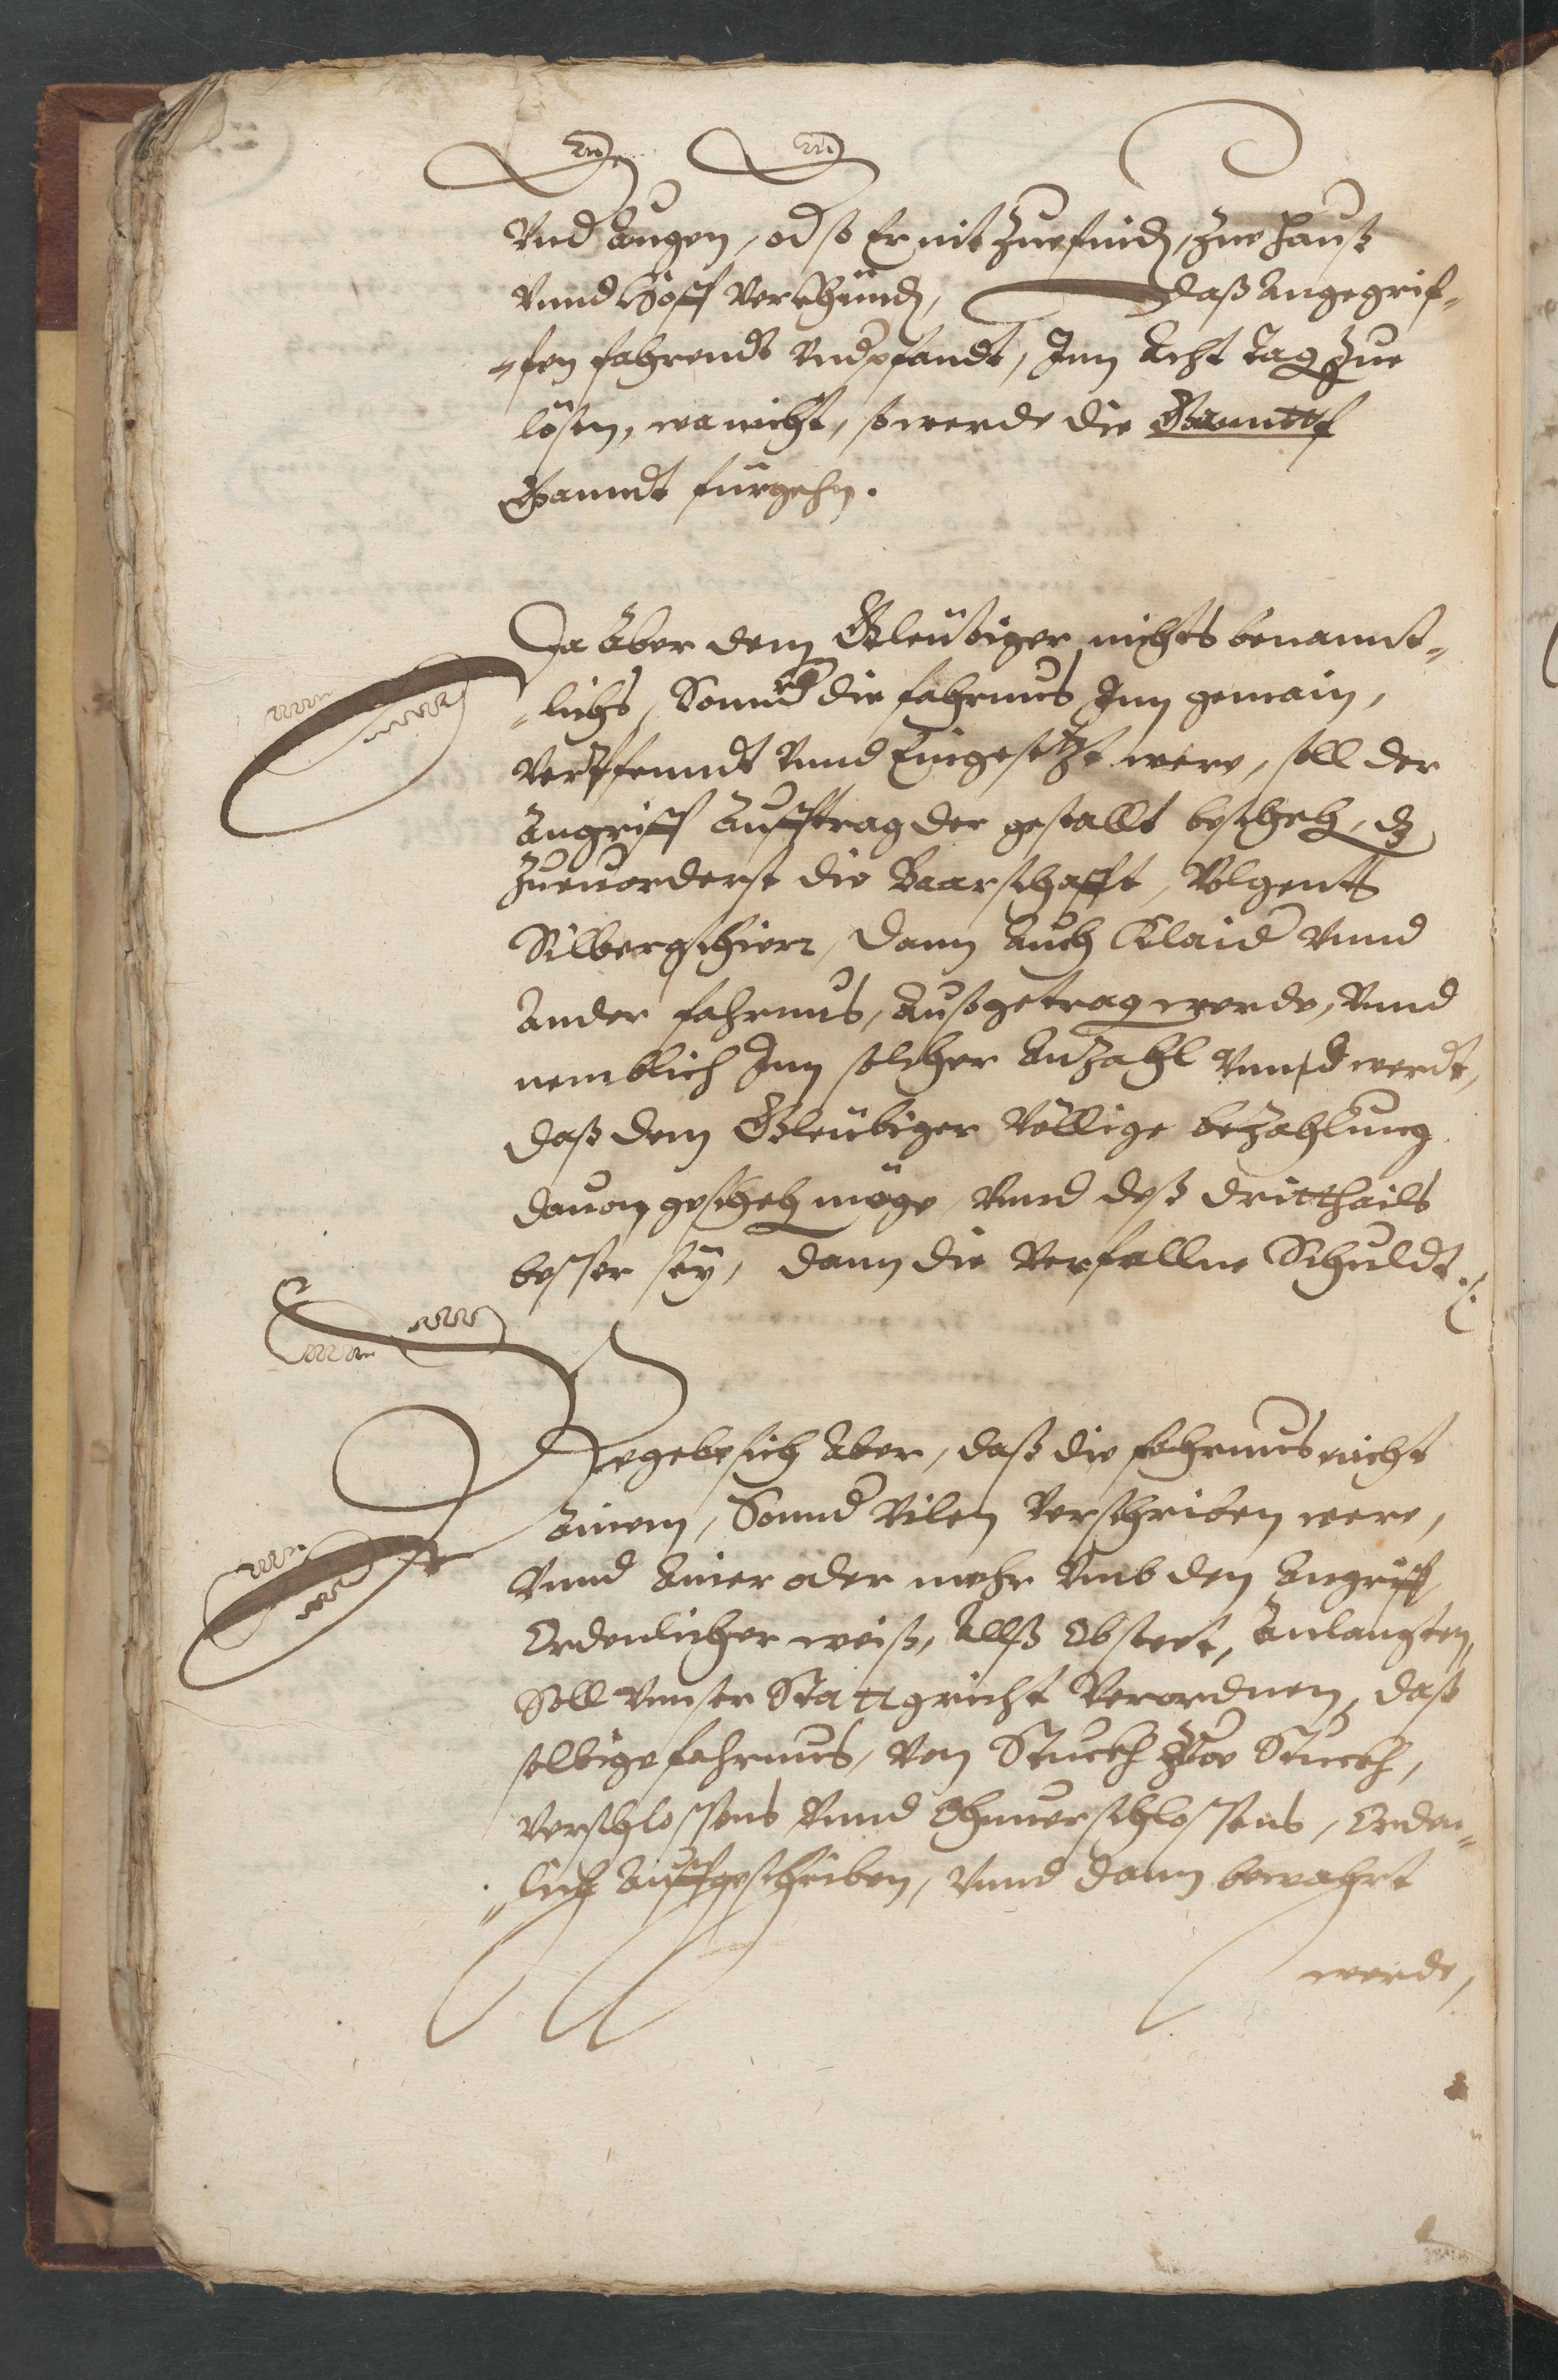 Vnd Augen, od so Er nit Zuefinden, Zue Hauß
Vnnd Hoff Verkhünden, daß Angegrif-
-fen fahrendt Vndpfandt, Inn Acht Tag Zue
lösen, wa nicht, so werde die
Ganndt fürgehn.
Da Aber dem Gleübiger nichts benannt-
-lichs, Sonnd die fahrnus Inn gemain,
Verpfenndt Vnnd Eingesetzt were, soll der
Angriff Aufftrag der gestallt beschehen, dz
Zueuorderst die Baarschafft, Volgents
Silbergschierr, Dann Auch Klaid Vnnd
Ander fahrnus, Außgetragen werde, Vnnd
nemblich Inn solcher Anzahl Vnnd werdt,
daß dem Gleübiger Völlige bezahlung
dauon geschehen möge, Vnnd deß drittthails
besser seÿ, dann die Verfallne Schuldt.
Begebe sich Aber, daß die fahrnus nicht
Ainem, Sonnd Vilen Verschriben were,
Vnnd Ainer oder mehr Vmb den Angriff
Ordenlicher weiß, Allß Obsteet, Anlangten,
Soll Vnnser Stattgricht Verordnen, daß
selbige fahrnus, Von Stuckh Zue Stuckh,
Verschlossens Vnnd Ohnuerschlossens, Orden-
-lich Auffgeschriben, Vnnd dann bewahrt
werde,